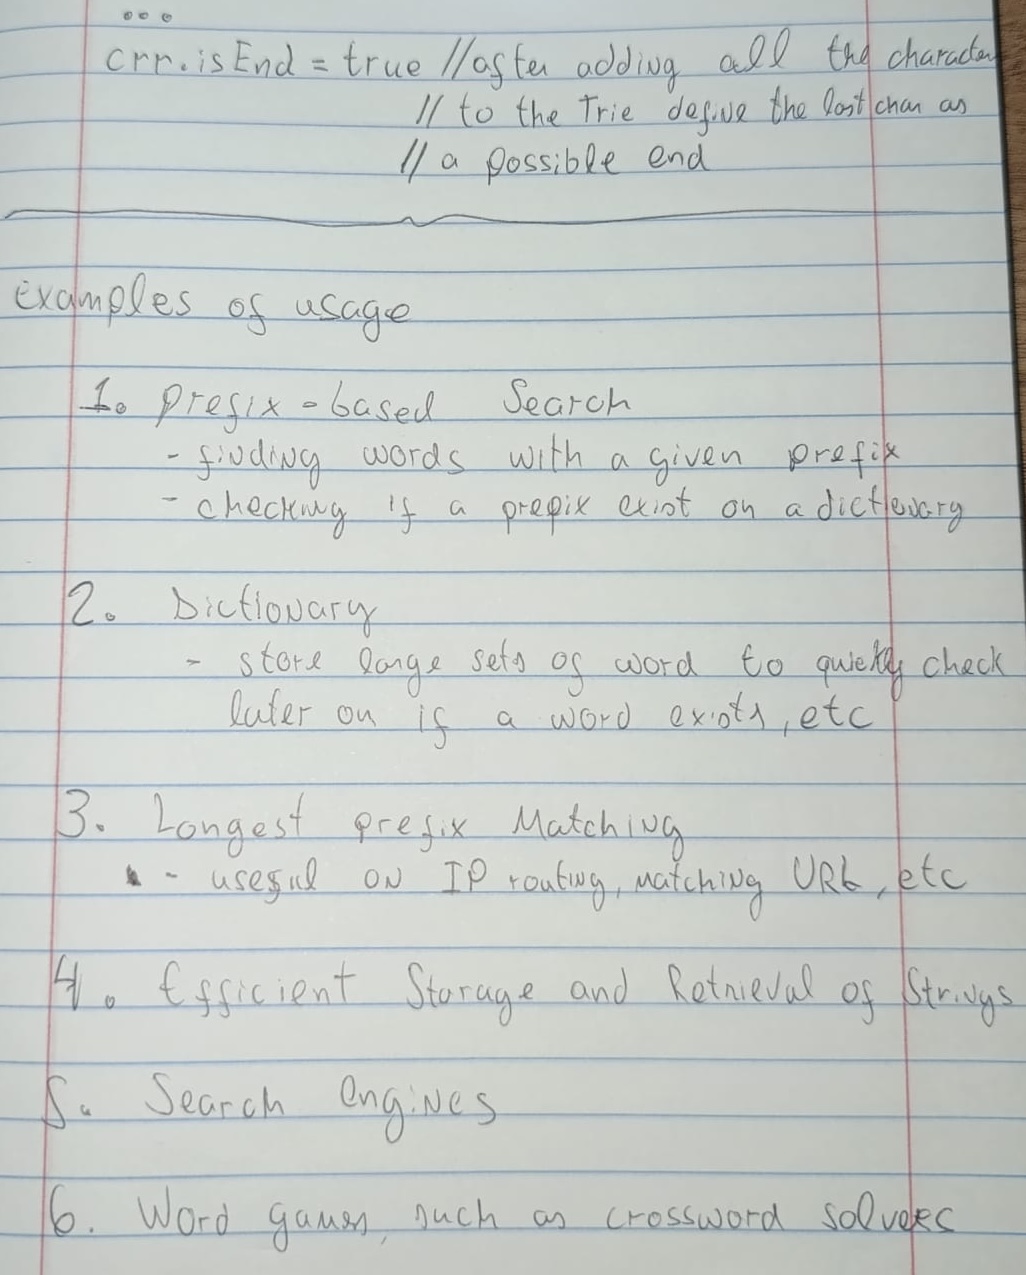 ...
crr.isEnd = true //after adding all the character
// to the Trie define the last char as
// a possible end
Examples of usage
1. Prefix-based Search
- finding words with a given prefix
- checking if a prefix exist on a dictionary
2. Dictionary
- store large sets of word to quickly check
later on if a word exists, etc
3. Longest prefix Matching
- useful on IP routing, matching URL, etc
4. Efficient Storage and Retrieval of Strings
5. Search engines
6. Word games, such as crossword solvers